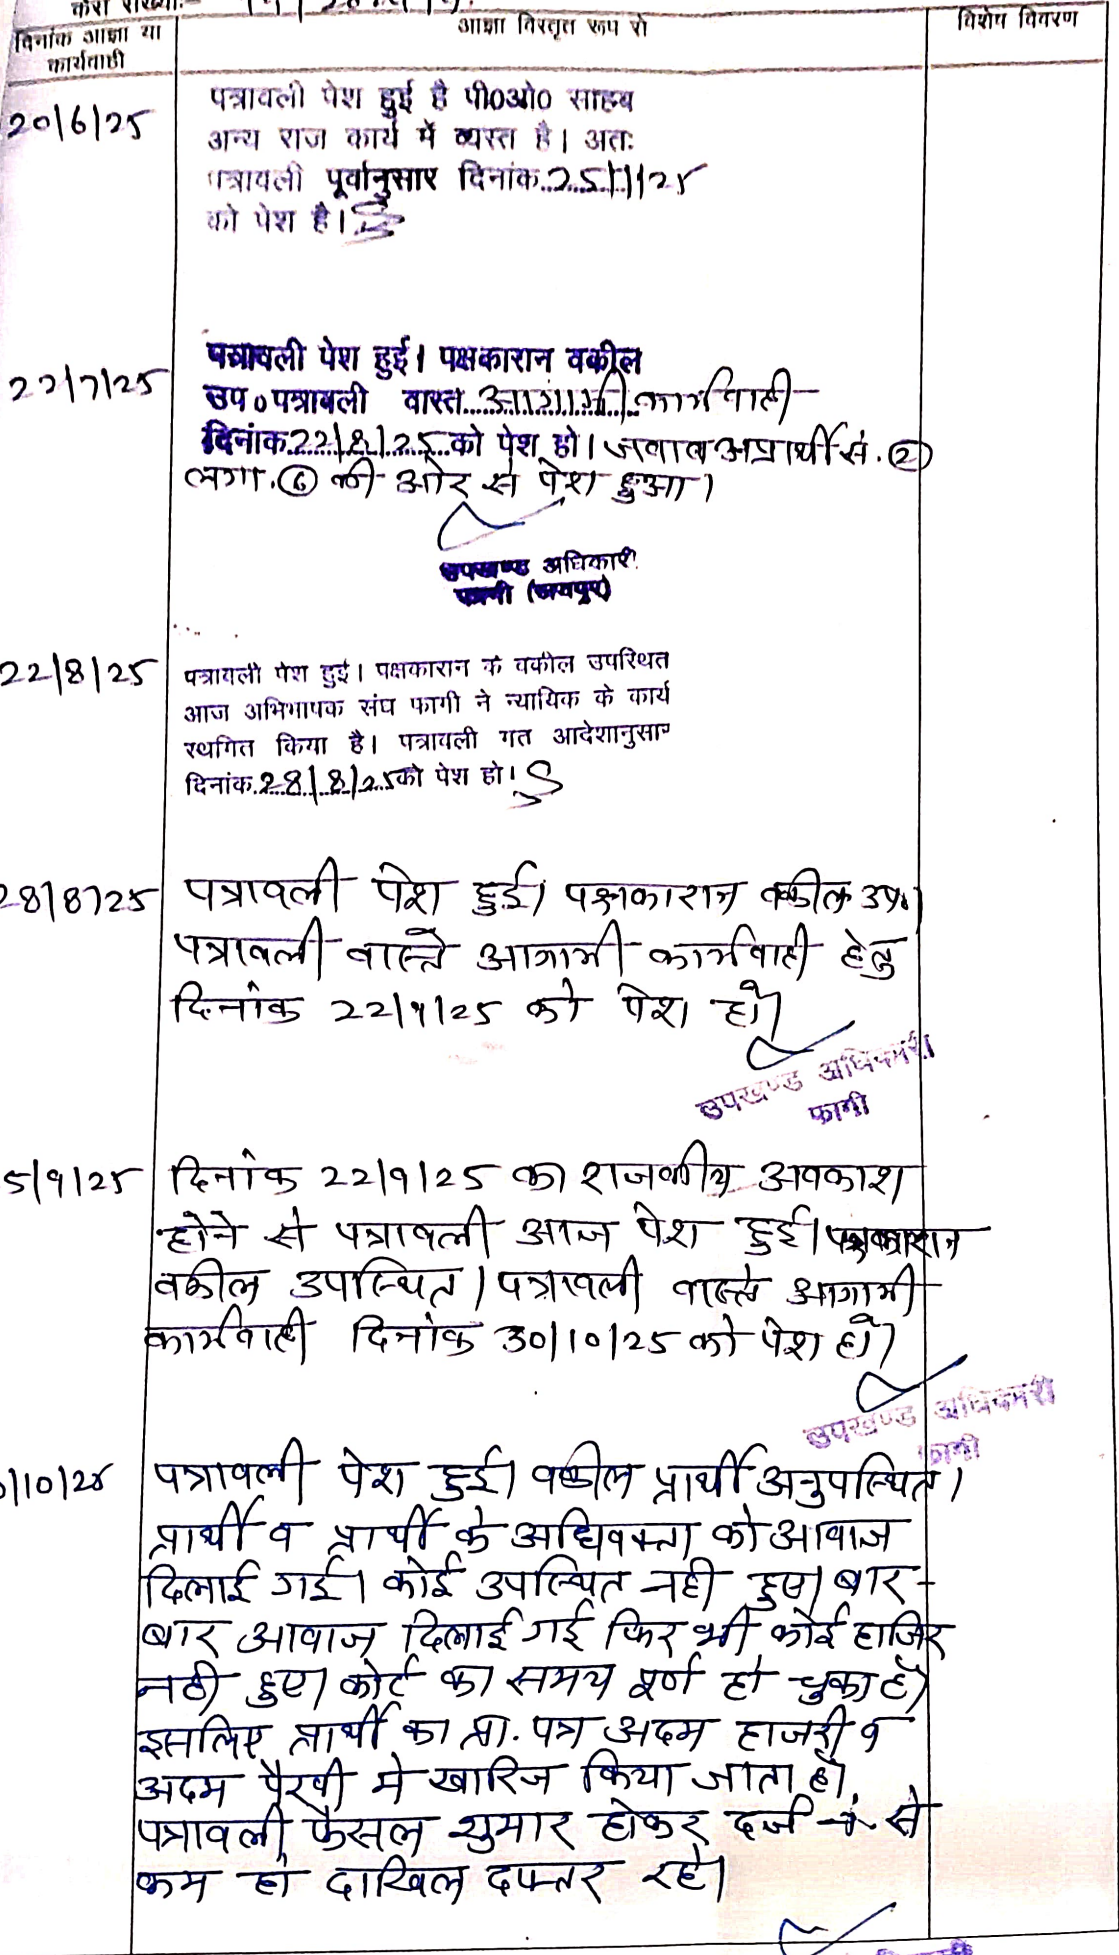 दिनांक आज्ञा या
कार्यवाही
आज्ञा विस्तृत रूप से
विशेष विवरण
20/6/25
पत्रावली पेश हुई है पी०ओ० साहब
अन्य राज कार्य में व्यस्त है। अतः
पत्रावली पूर्वानुसार दिनांक
को पेश है।
22/7/25
पत्रावली पेश हुई। पक्षकारान वकील
उप० पत्रावली वास्ते आगामी कार्यवाही
दिनांक 22/8/25 को पेश हो। जवाब अप्रार्थी सं. 2
लगा. 6 की ओर से पेश हुआ।
उपखण्ड अधिकारी
फागी (जयपुर)
22/8/25
पत्रावली पेश हुई। पक्षकारान के वकील उपस्थित
आज अभिभाषक संघ फागी ने न्यायिक के कार्य
स्थगित किया है। पत्रावली गत आदेशानुसार
दिनांक 28/8/25 को पेश हो।
28/8/25
पत्रावली पेश हुई। पक्षकारान वकील उप.।
पत्रावली वास्ते आगामी कार्यवाही हेतु
दिनांक 22/9/25 को पेश हो।
उपखण्ड अधिकारी
फागी
5/9/25
दिनांक 22/9/25 का राजकीय अवकाश
होने से पत्रावली आज पेश हुई। पक्षकारान
वकील उपस्थित। पत्रावली वास्ते आगामी
कार्यवाही दिनांक 30/10/25 को पेश हो।
उपखण्ड अधिकारी
फागी
/10/25
पत्रावली पेश हुई। वकील प्रार्थी अनुपस्थित।
प्रार्थी व प्रार्थी के अधिवक्ता को आवाज
दिलाई गई। कोई उपस्थित नही हुए। बार-
बार आवाज दिलाई गई फिर भी कोई हाजिर
नही हुए। कोर्ट का समय पूर्ण हो चुका है।
इसलिए प्रार्थी का प्रा. पत्र अदम हाजरी व
अदम पैरवी मे खारिज किया जाता है।
पत्रावली फैसल शुमार होकर दर्ज न. से
कम हो दाखिल दफ्तर रहे।